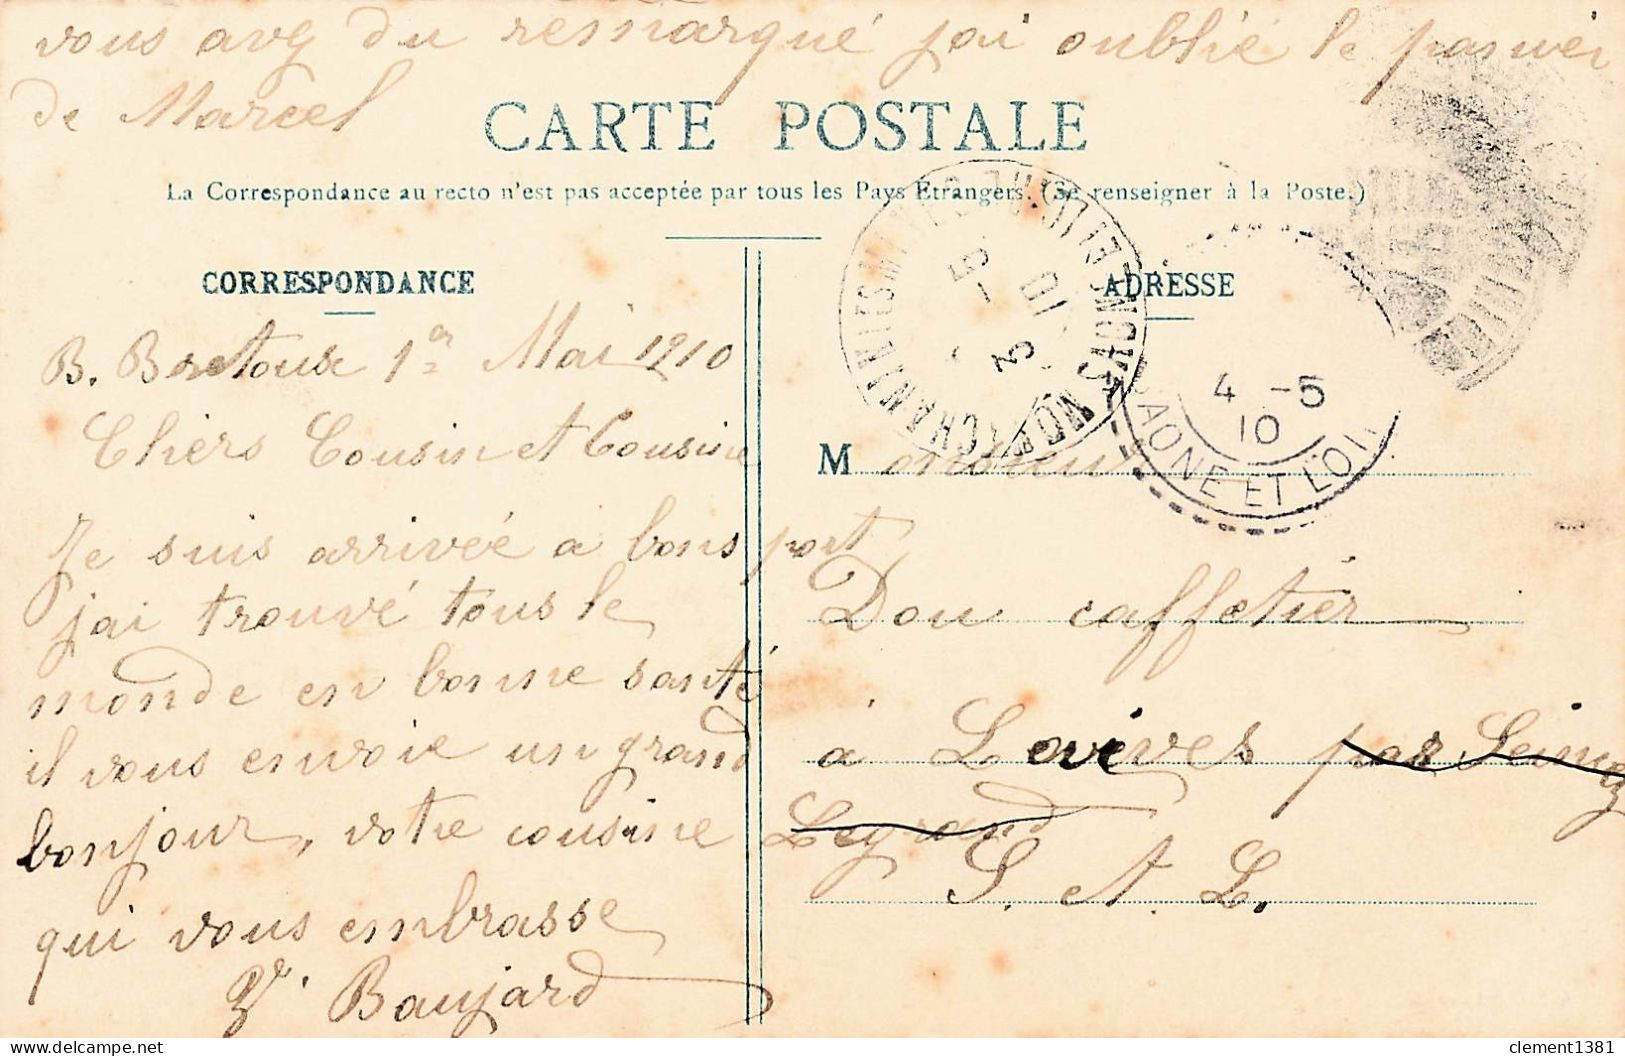 vous avez du remarqué jai oublié le panier
de Marcel
CARTE POSTALE
La Correspondance au recto n'est pas acceptée par tous les Pays Etrangers. (Se renseigner à la Poste.)
CORRESPONDANCE
B. Bretoux 1er Mai 1910
Chers Cousin et Cousine
Je suis arrivée a bons port
jai trouvé tous le
monde en bonne santé
il vous envoie un grand
bonjour, votre cousine
qui vous embrasse
Baujard
ADRESSE
MONTCHANIN LES MINES
3 - 5
10
4 - 5
10
SAONE ET LOIRE
Monsieur
Dou caffetier
à Lesèves par Semez
Legrand
S. et L.
clement1381